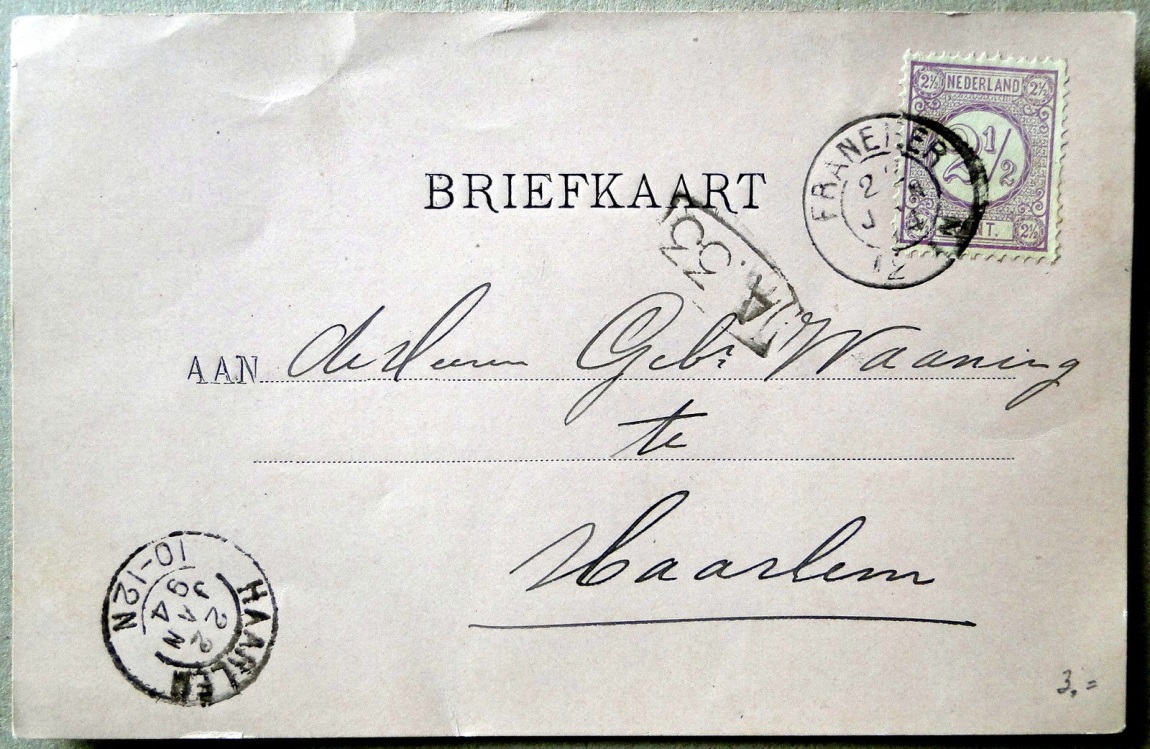 2½ NEDERLAND 2½
2½
CENT. 2½
FRANEKER
BRIEFKAART
AAN de Heeren Gebr Waaning
te
Haarlem
HAARLEM
22
JAN
94
10-12N
3,=